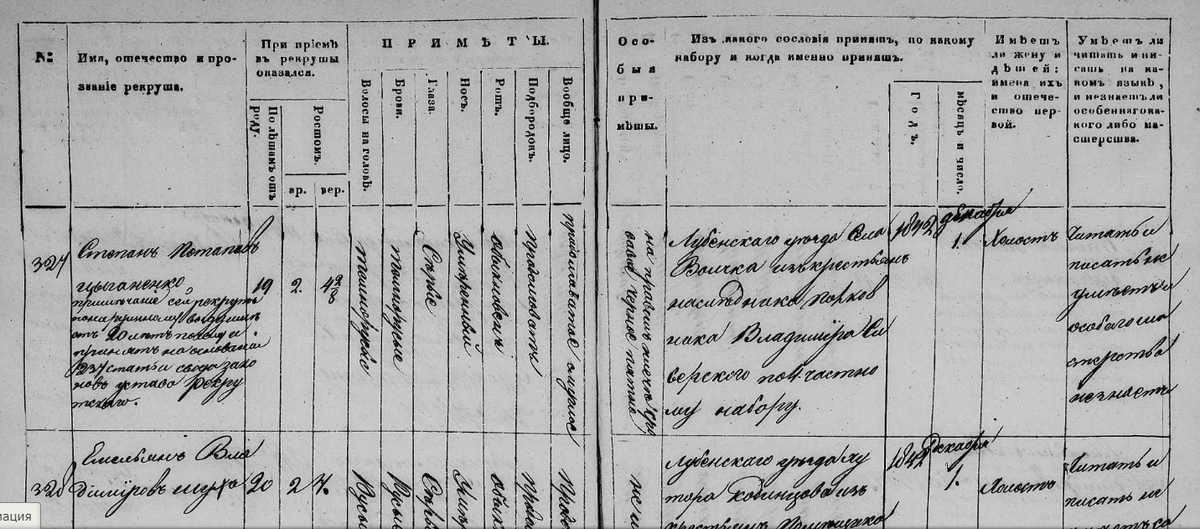 №
Имя, отечество и про-
званіе рекрута.
При пріемѣ
въ рекруты
оказался.
По лѣтамъ отъ
роду.
Ростомъ.
ар.
вер.
ПРИМѢТЫ.
Волосы на головѣ.
Брови.
Глаза.
Носъ.
Ротъ.
Подбородокъ.
Вообще лицо.
Осо-
быя
при-
мѣты.
Изъ какого сословія принятъ, по какому
набору и когда именно принятъ.
Годъ.
мѣсяцъ и число.
Имѣетъ
ли жену и
дѣтей:
имена ихъ
и отече-
ство пер-
вой.
Умѣетъ ли
читать и пи-
сать на ка-
комъ языкѣ,
и незнаетъ ли
особеннаго ка-
кого либо ма-
стерства.
327
Степанъ Потаповъ
Цыганенко
примѣчаніе сей рекрутъ
отъ 20 лѣтъ
принятъ на основаніи
234 статьи свода зако
новъ устава Рекру
тскаго.
19
2.
темнорусіе
темнорусые
Сѣрые
Умѣренный
обыкновен
продолговатое смуглое
на правомъ плечѣ
черное пятно
Лубенскаго уѣзда Села
Воички изъ крестьянъ
наслѣдника полков
ника Владиміра Си
верскаго по 4 частно
му набору.
1842
декабря
1.
Холостъ
Читать и
писать не
умѣетъ и
особаго ма
стерства
незнаетъ
328
Емельянъ Вла
диміровъ
20
2
7.
Русы
Лубенскаго уѣзда ху
тора изъ
1842
Декабря
1.
Холостъ
Читать и
писать не
мация